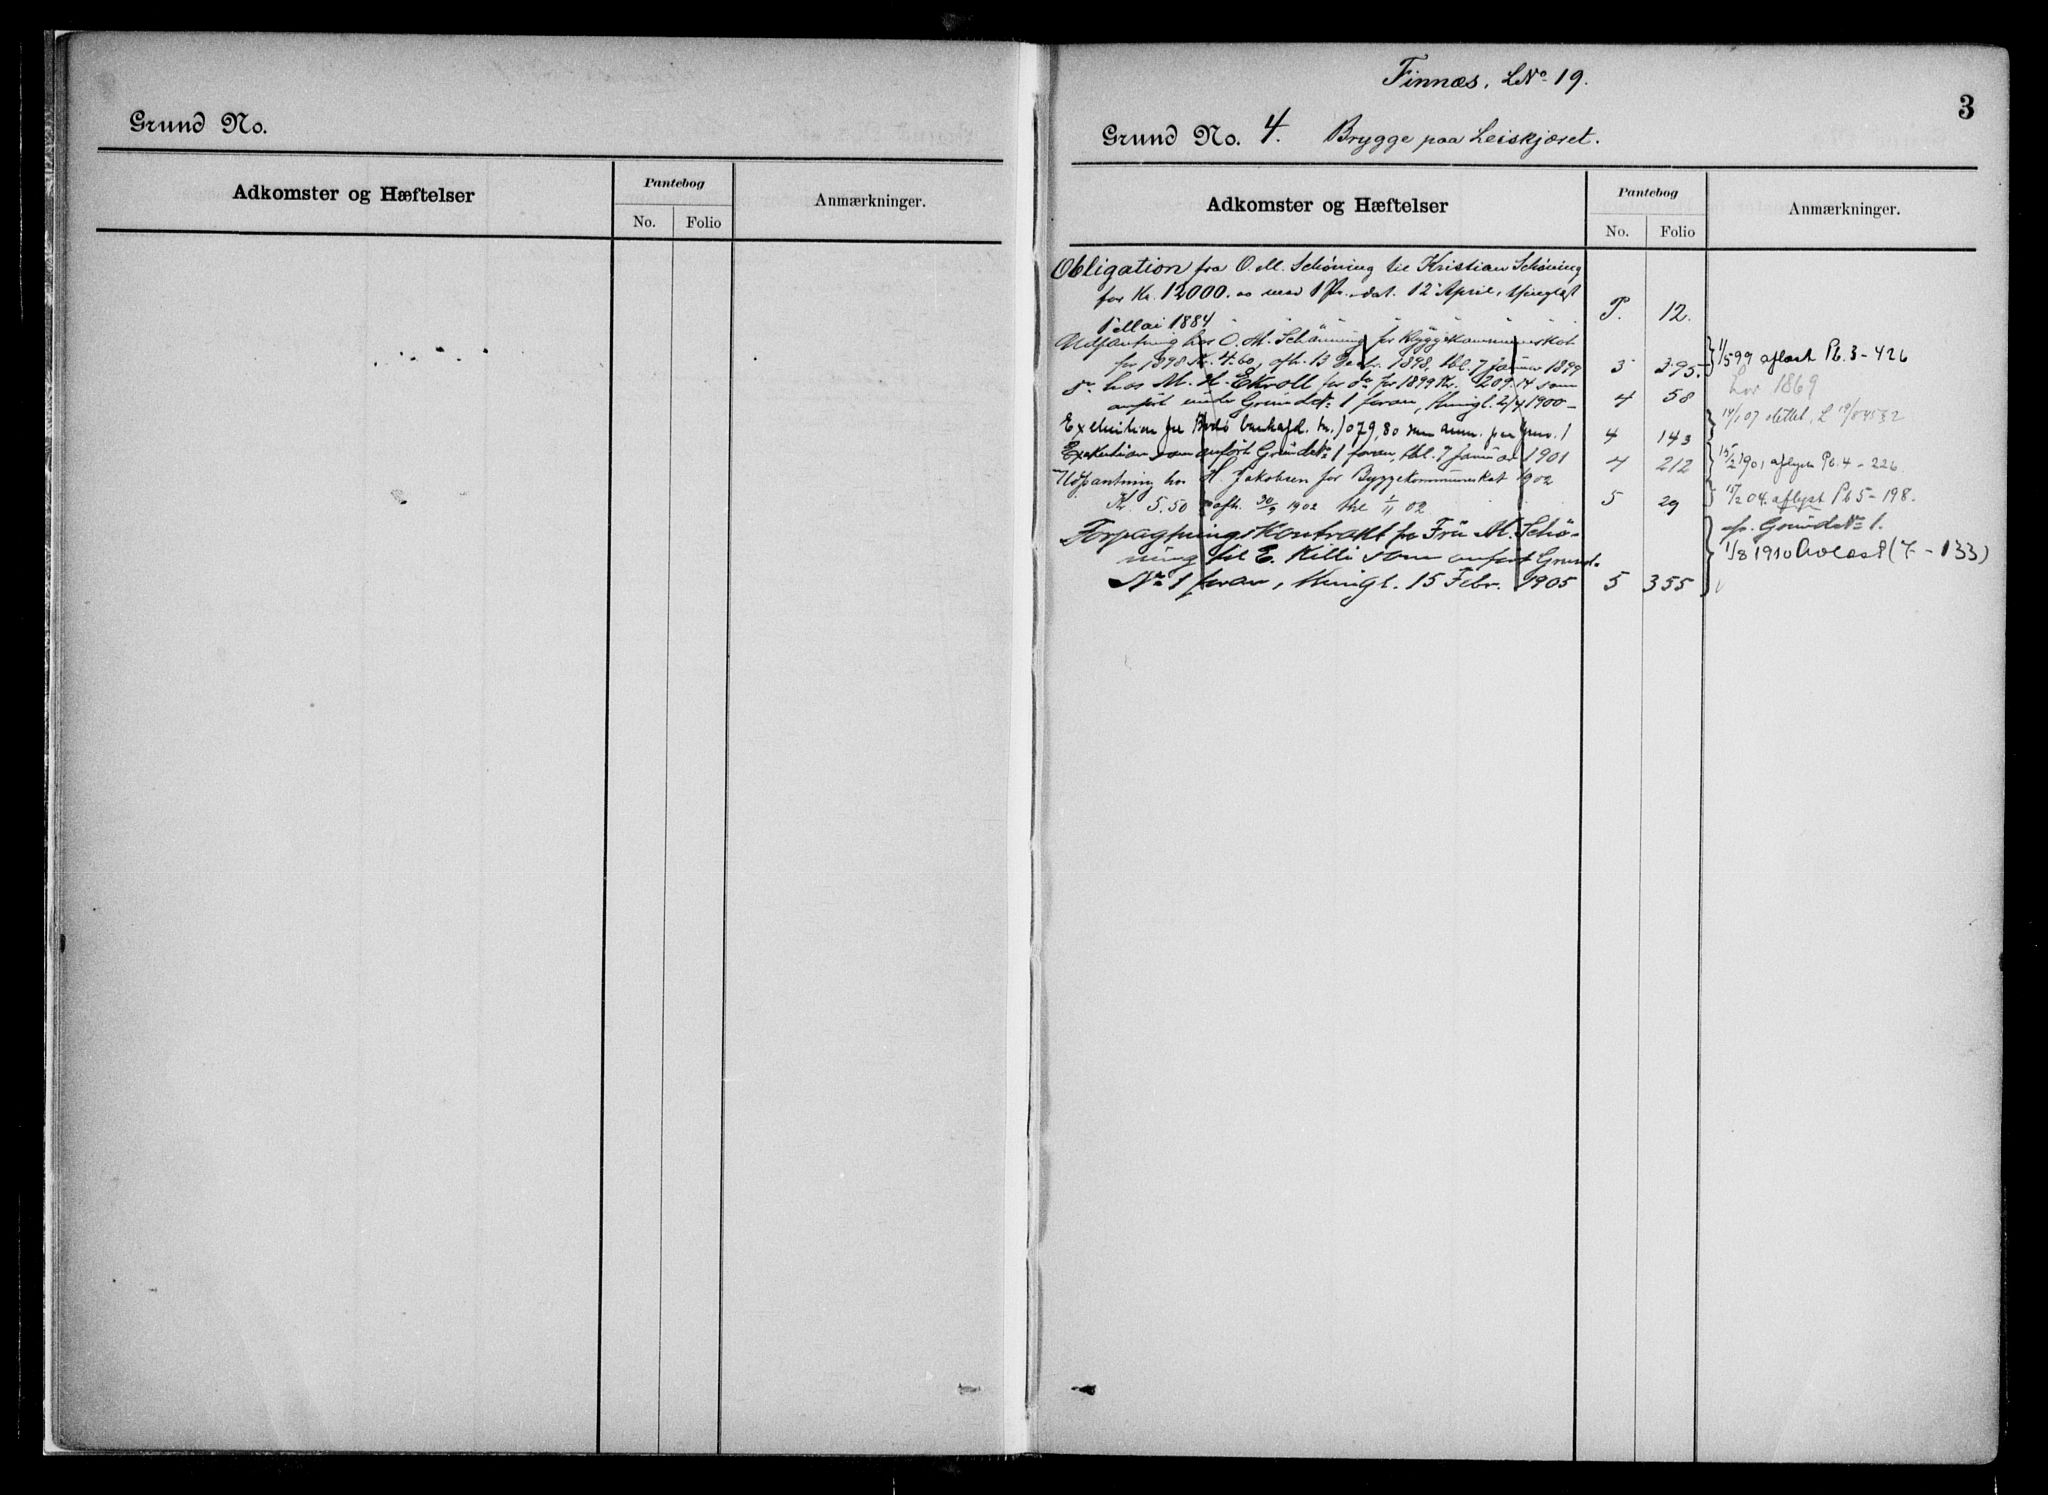 Grund No.
Adkomster og Hæftelser
Pantebog
No. Folio
Anmærkninger.
Finnæs. LNo 19.
3
Grund No. 4. Brygge paa Leiskjæret.
Adkomster og Hæftelser
Pantebog
No. Folio
Anmærkninger.
Obligation fra O. M. Schøning til Kristian Schøning
for Kr. 12000.00 med 1 Pr. dat. 12 April, thinglæst
1 Mai 1884 P. 12.
Udpantning hos O. M. Schøning for Byggekommuneskat
for 1898 Kr. 4.60, afh. 13 Decbr. 1898, tbl. 7 Januar 1899 3 395. 1/5 99 aflæst Pb. 3 - 426
do hos M. H. Ekroll for do for 1899 Kr. 209.14 som
anført under Grund No 1 foran, thingl. 2/4 1900 4 58
Lov 1869
Execution for Bodø bankafd. Kr. 1079,80 som anm. paa Grno. 1 4 143 14/1 07 slettet, L 19/8 4532
Exekution som anført Grund No 1 foran, tbl. 7 Januar 1901 4 212 15/2 1901 aflyst Pb. 4 - 226
Udpantning hos H. Jakobsen for Byggekommuneskat 1902
Kr. 5.50 afh. 30/9 1902 tbl 1/11 02. 5 29 15/2 04. aflyst Pb 5 - 198.
Forpagtningskontrakt fr Frü M. Schø-
ning til E. Killi som anført Grund-
No 1 foran, thingl. 15 Febr. 1905 5 355
fr. Grund No 1.
1/8 1910 Avlæst (7 - 133)